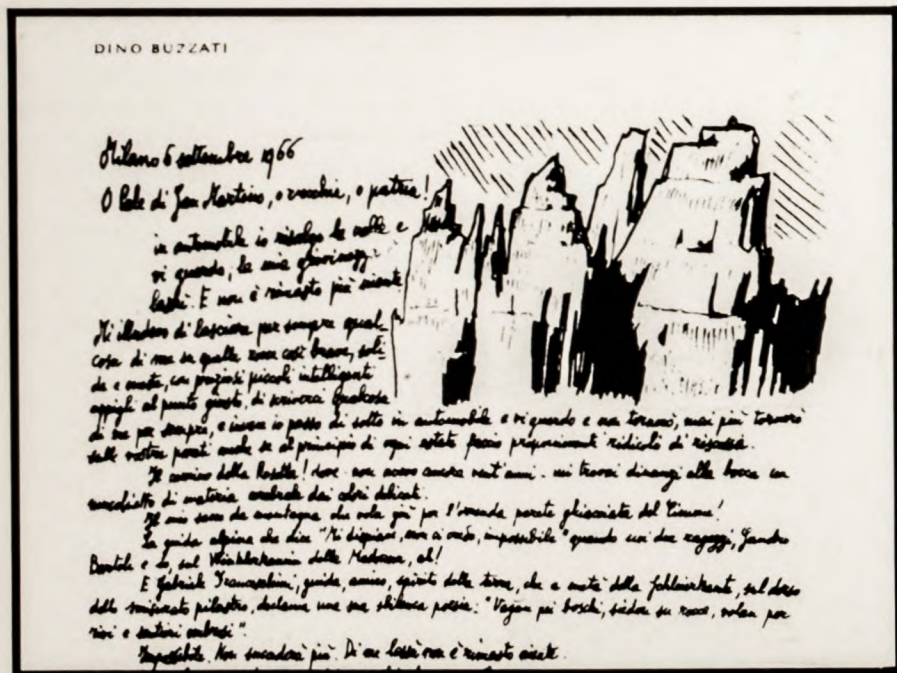 DINO BUZZATI
Milano 6 settembre 1966
O Pale di San Martino, o vecchie, o patria!
in automobile io risalgo la valle e
vi guardo, la mia giovinezza
lassù. E non è rimasto più niente
Mi illudevo di lasciare per sempre qual-
cosa di me su quelle rocce così brave, soli-
de e oneste, con preziosi piccoli intelligenti
appigli al punto giusto, di scriverci qualcosa
di me per sempre, e invece io passo di sotto in automobile e vi guardo e non tornerò, mai più tornerò
sulle vostre pareti anche se al principio di ogni estate faccio proponimenti ridicoli di riscossa.
Il camino della Rosetta! dove non avevo ancora vent'anni mi trovai dinanzi alla bocca un
mucchietto di materia cerebrale dai colori delicati.
Il mio sacco da montagna che vola giù per l'orrenda parete ghiacciata del Cimone!
La guida alpina che dice "Mi dispiace, non ci credo, impossibile" quando noi due ragazzi, Sandro
Bartoli e io, sul della Madonna, ah!
E Gabriele Franceschini, guida, amico, spirito della terra, che a metà della sul dorso
dello smisurato pilastro, declama una sua poesia: "Vagan pei boschi, siedon su rocce, volan per
rivi e sentieri ombrosi".
Impossibile. Non succederà più. Di me lassù non è rimasto niente.